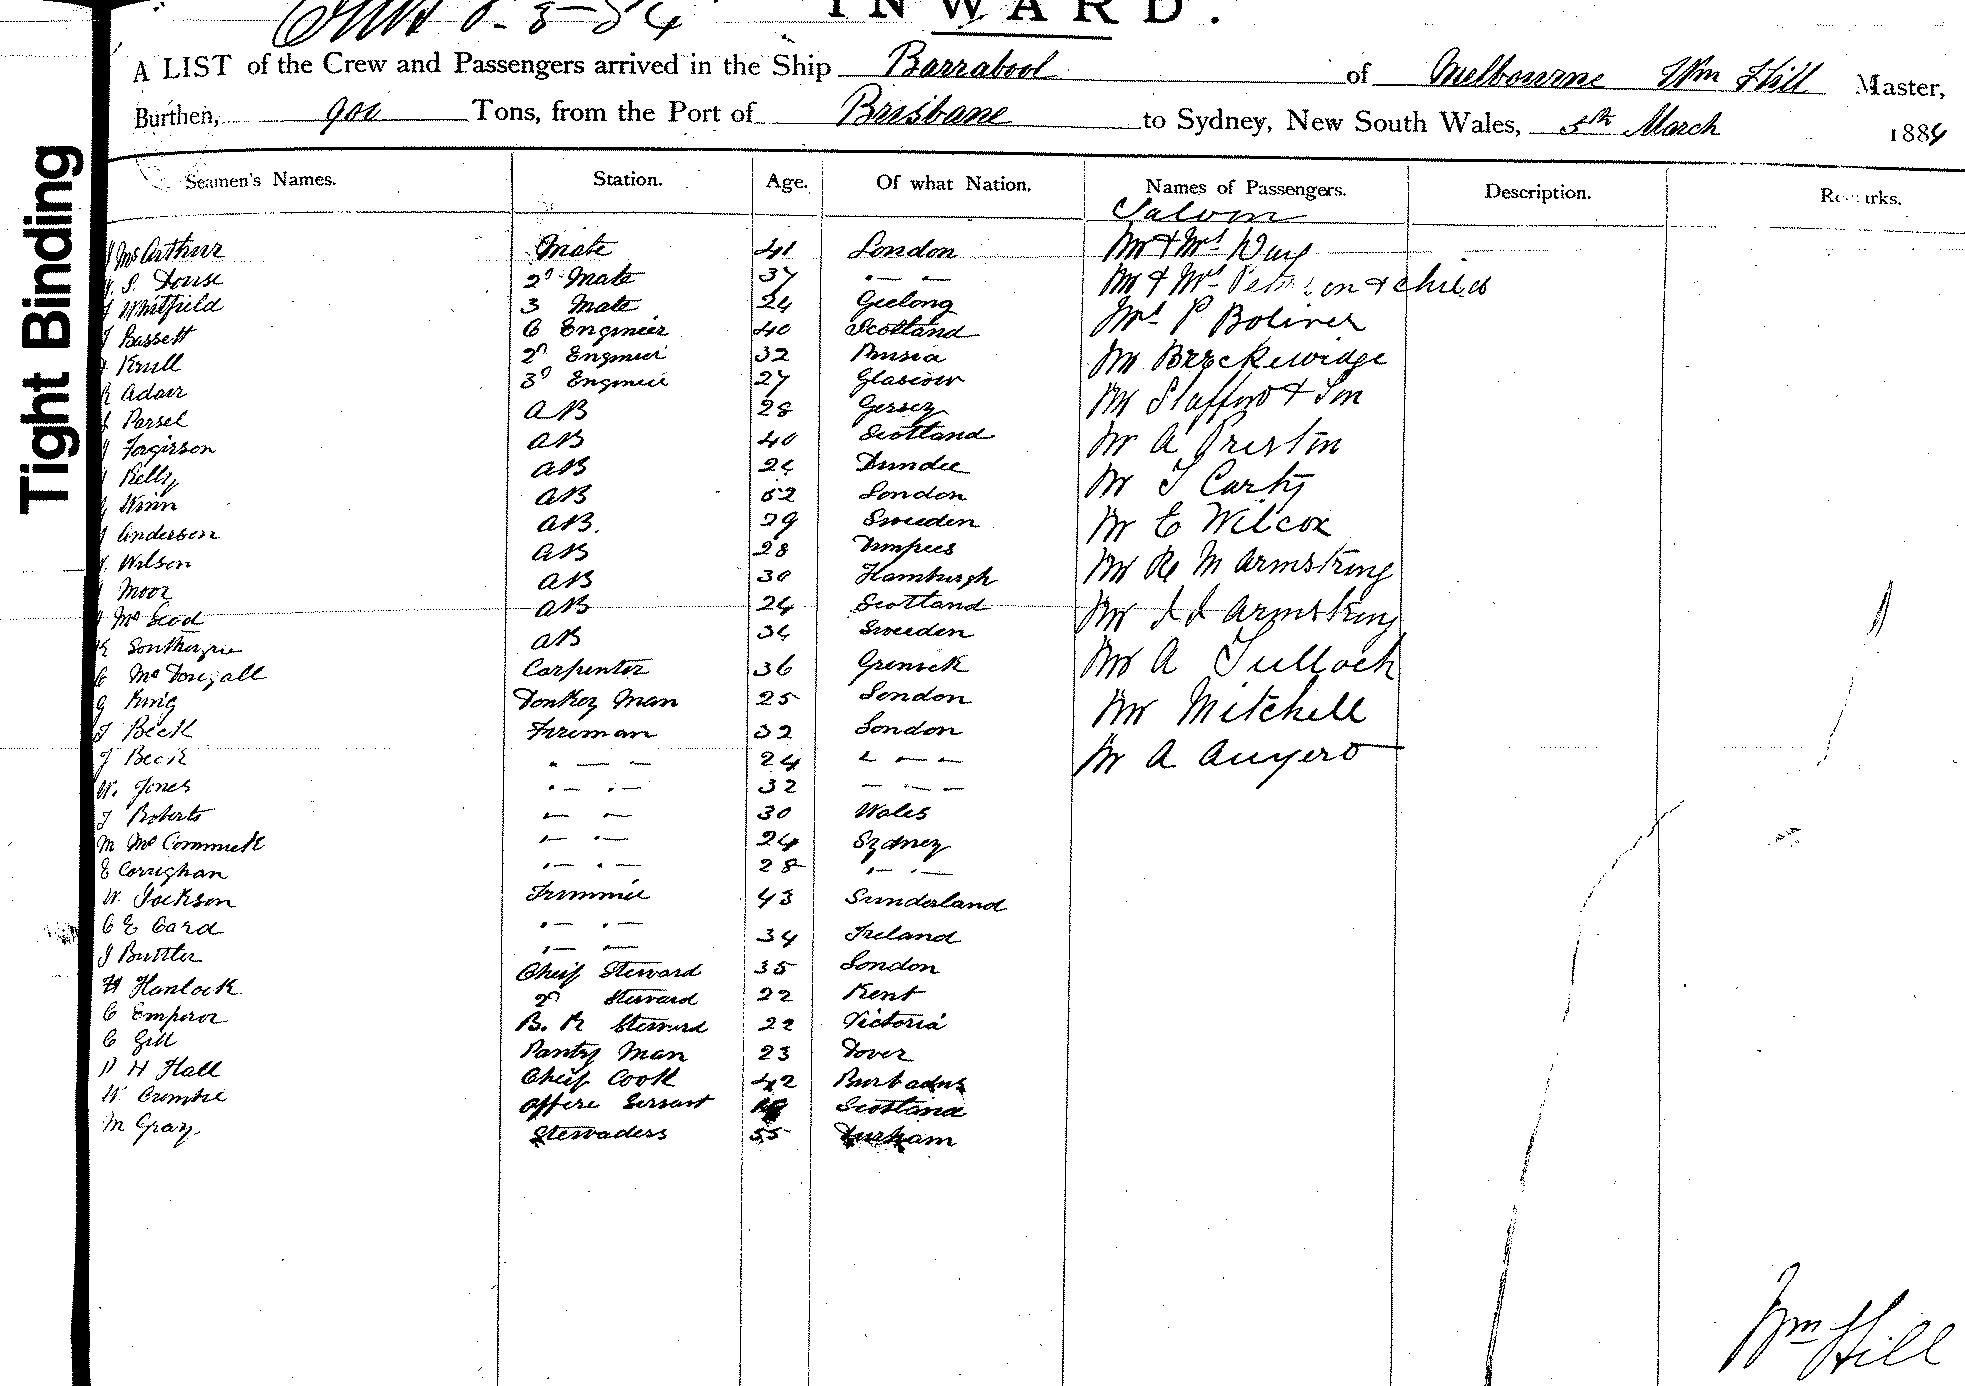 INWARD.
A LIST of the Crew and Passengers arrived in the Ship Barrabool of Melbourne Wm Hill Master,
Burthen, 900 Tons, from the Port of Brisbane to Sydney, New South Wales, 5th March 1884
Tight Binding
Seamen's Names. Station. Age. Of what Nation. Names of Passengers. Description. Remarks.
Saloon
McArthur Mate 41 London Mr & Mrs Way
S. Douse 2d Mate 37 " — Mr & Mrs & child
Whitfield 3 Mate 24 Geelong Mrs P Boliver
Bassett C Engineer 40 Scotland Mr Breckewidge
Krull 2d Engineer 32 Prusia Mr Stafford & Son
Adair 3d Engineer 27 Glascow Mr A Preston
Persel AB 28 Gersey Mr T Carty
Forgisson AB 40 Scotland Mr E Wilcox
Kelly AB 24 Dundee Mr Re M Armstrong
Winn AB 52 London Mr J J Armstrong
Anderson AB. 29 Sweeden Mr A Tullock
Wilson AB 28 Mr Mitchell
Moor AB 30 Hamburgh Mr A
McLeod AB 24 Scotland
AB 34 Sweeden
C McDougall Carpenter 36 Grenick
G King Donkey Man 25 London
J Beck Fireman 32 London
J Beck " — — 24 " — —
W. Jones " — " — 32 — " —
J Roberts " — — 30 Wales
M McCormick " — " — 24 Sydney
E Corrighan " — " — 28 " — " —
W. Jackson Trimmer 43 Sunderland
C E Card " — " — 34 Ireland
J Buttler " — —
H Hanlock Cheif Steward 35 London
C Emperor 2d Steward 22 Kent
C Gill B. R Steward 22 Victoria
H Hall Pantry Man 23 Dover
W. Crombie Cheif Cook 42 Barbadus
M Gray Servant Scotland
Stewadess 55 Durham
Wm Hill